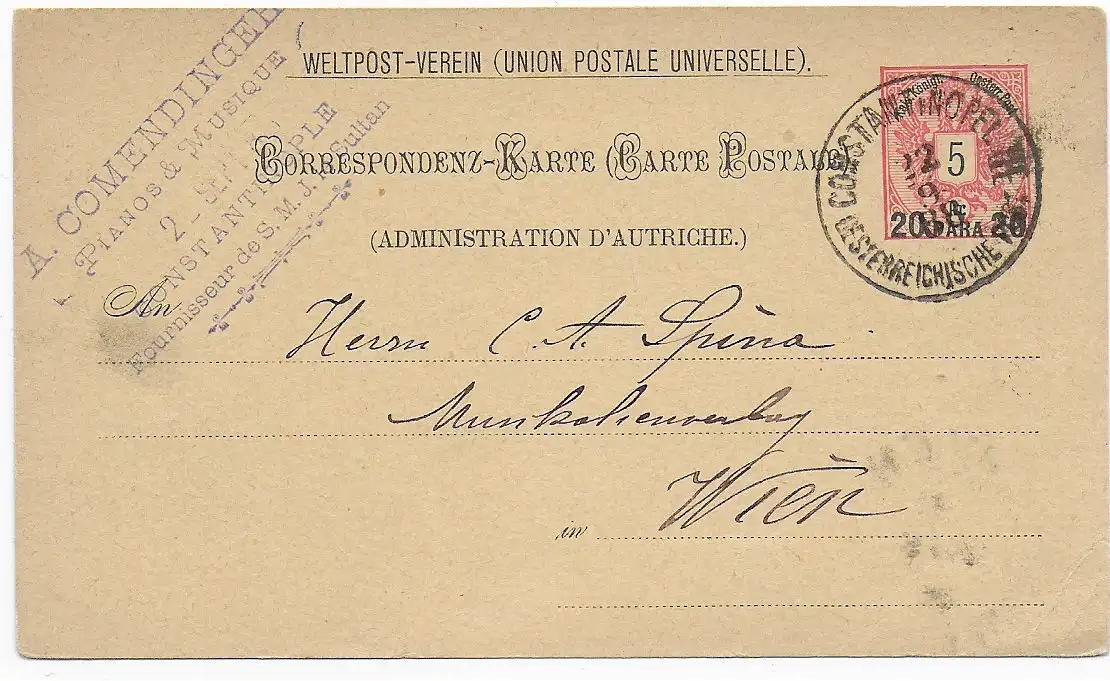 A. COMENDINGER
PIANOS & MUSIQUE
2 - SEP
CONSTANTINOPLE
Fournisseur de S. M. J. le Sultan
WELTPOST-VEREIN (UNION POSTALE UNIVERSELLE).
CORRESPONDENZ-KARTE (CARTE POSTALE)
(ADMINISTRATION D'AUTRICHE.)
Kais. Königl. Oesterr. Post
5
20 PARA 20
CONSTANTINOPEL
OESTERREICHISCHE
An
Herrn C. A. Spina
Musikalienverlag
Wien
in